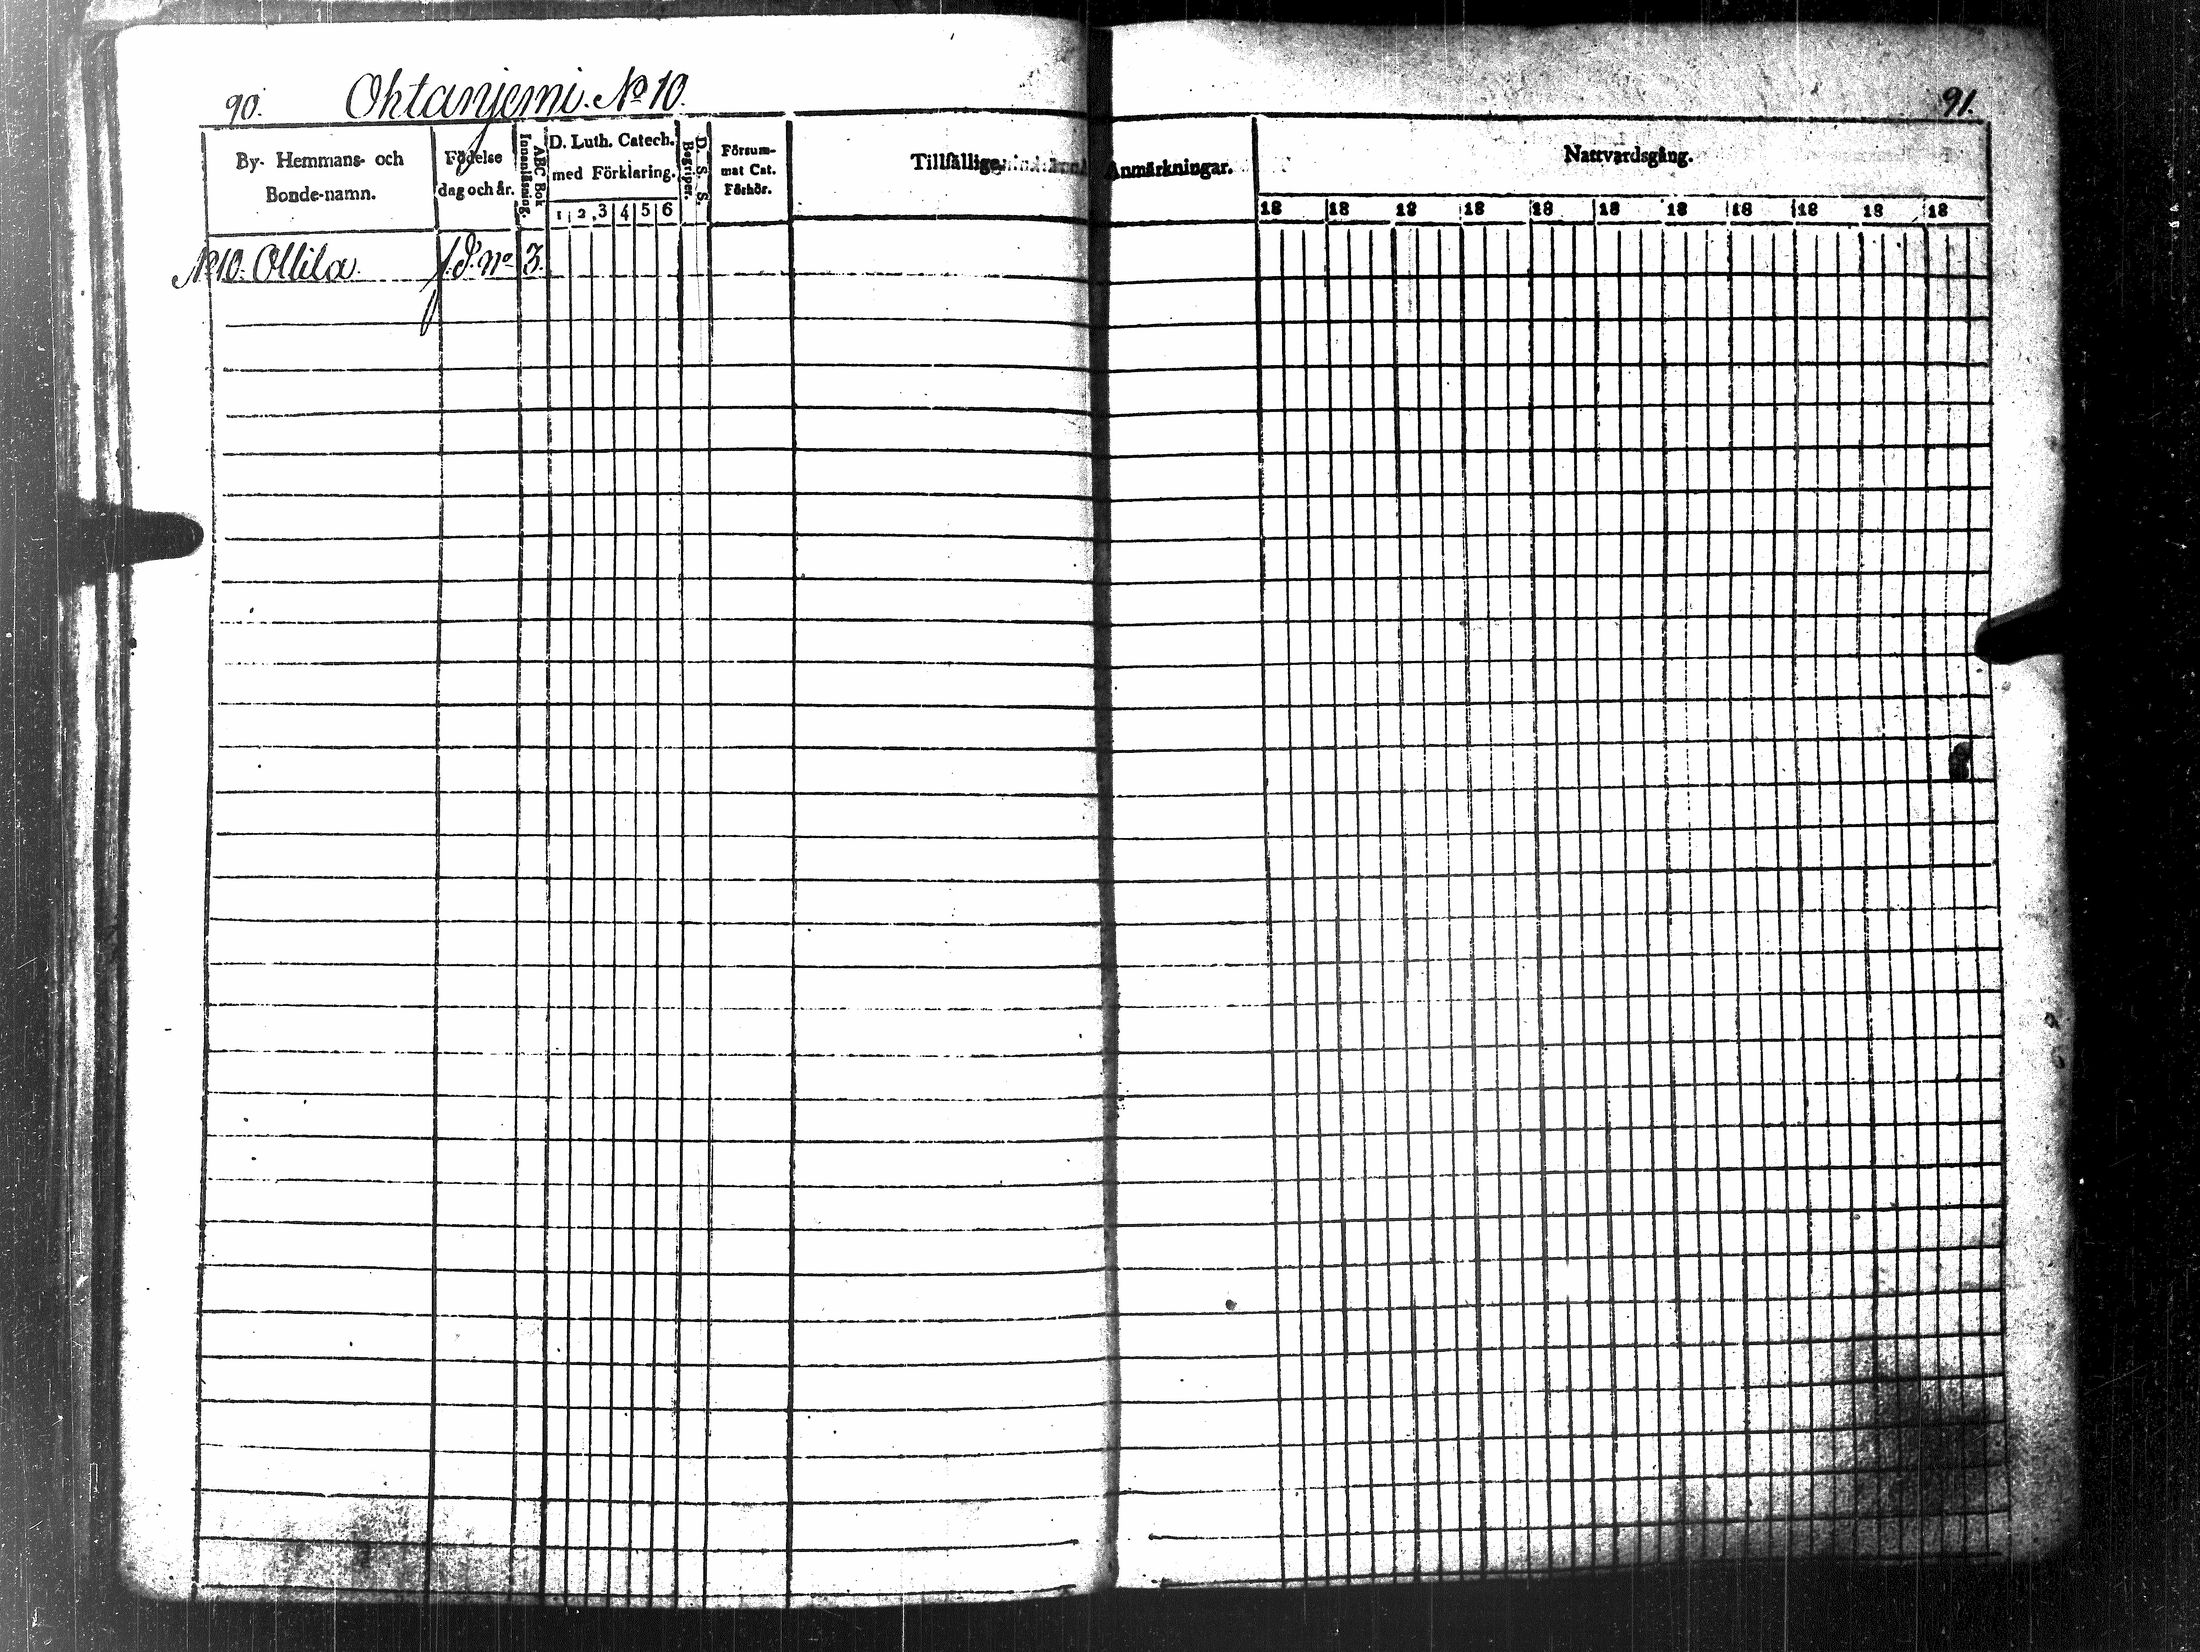 90. Ohtanjemi. No 10.
91.
By- Hemmans- och
Bonde-namn.
Födelse
dag och år.
ABC Bok
Innanläsning.
D. Luth. Catech.
med Förklaring.
1 2 3 4 5 6
D. S. S.
Begriper.
Försum-
mat Cat.
Förhör.
Tillfällige Anmärkningar.
Nattvardsgång.
18 18 18 18 18 18 18 18 18 18 18
No 10. Ollila. f. d. no 3.